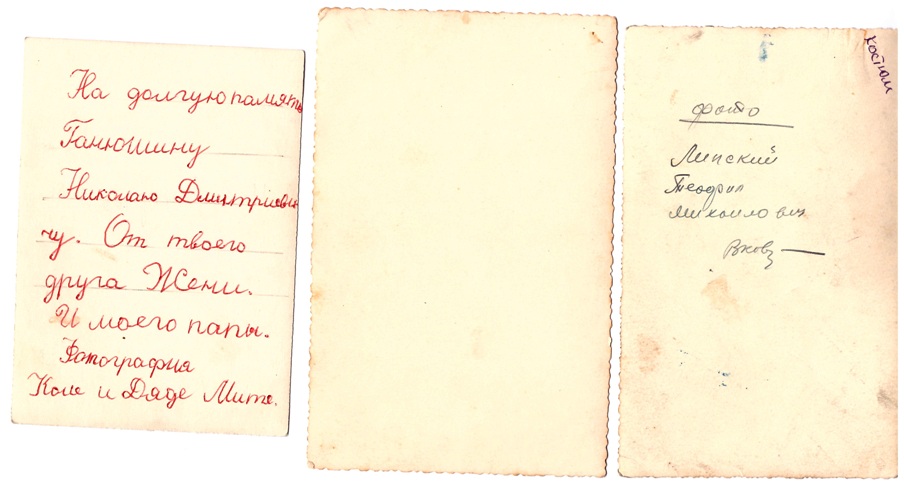 На долгую память
Ганюшину
Николаю Дмитриеви
чу. От твоего
друга Жени.
И моего папы.
Фотография
Коле и Дяде Мите.
фото
Липский
Теофил
Михайлович
костюм